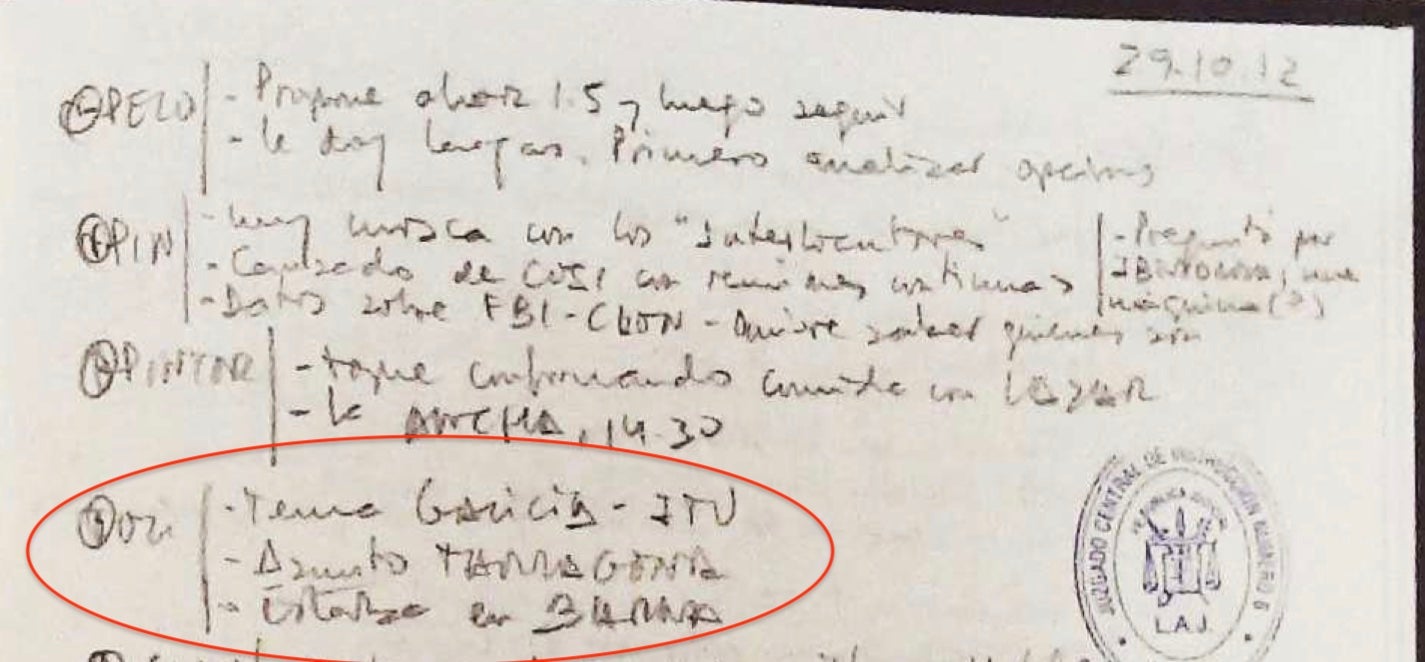 29.10.12
PELO
- Propone ahora 1.5 y luego seguir
- Le doy largas. Primero analizar opciones
PIN
- Muy mosca con los "Interlocutores"
- Cansado de COSI con reuniones continuas
- Datos sobre FBI - CLON - Quiere saber quienes son
- Preguntó por
IBERDROLA, una
máquina (?)
PINTOR
- toque confirmando comida con LEZAR
- La ANCHA, 14.30
- Tema Galicia - ITV
- Asunto TARRAGONA
- en BARNA
JUZGADO CENTRAL DE INSTRUCCION NUMERO 6
L.A.J.